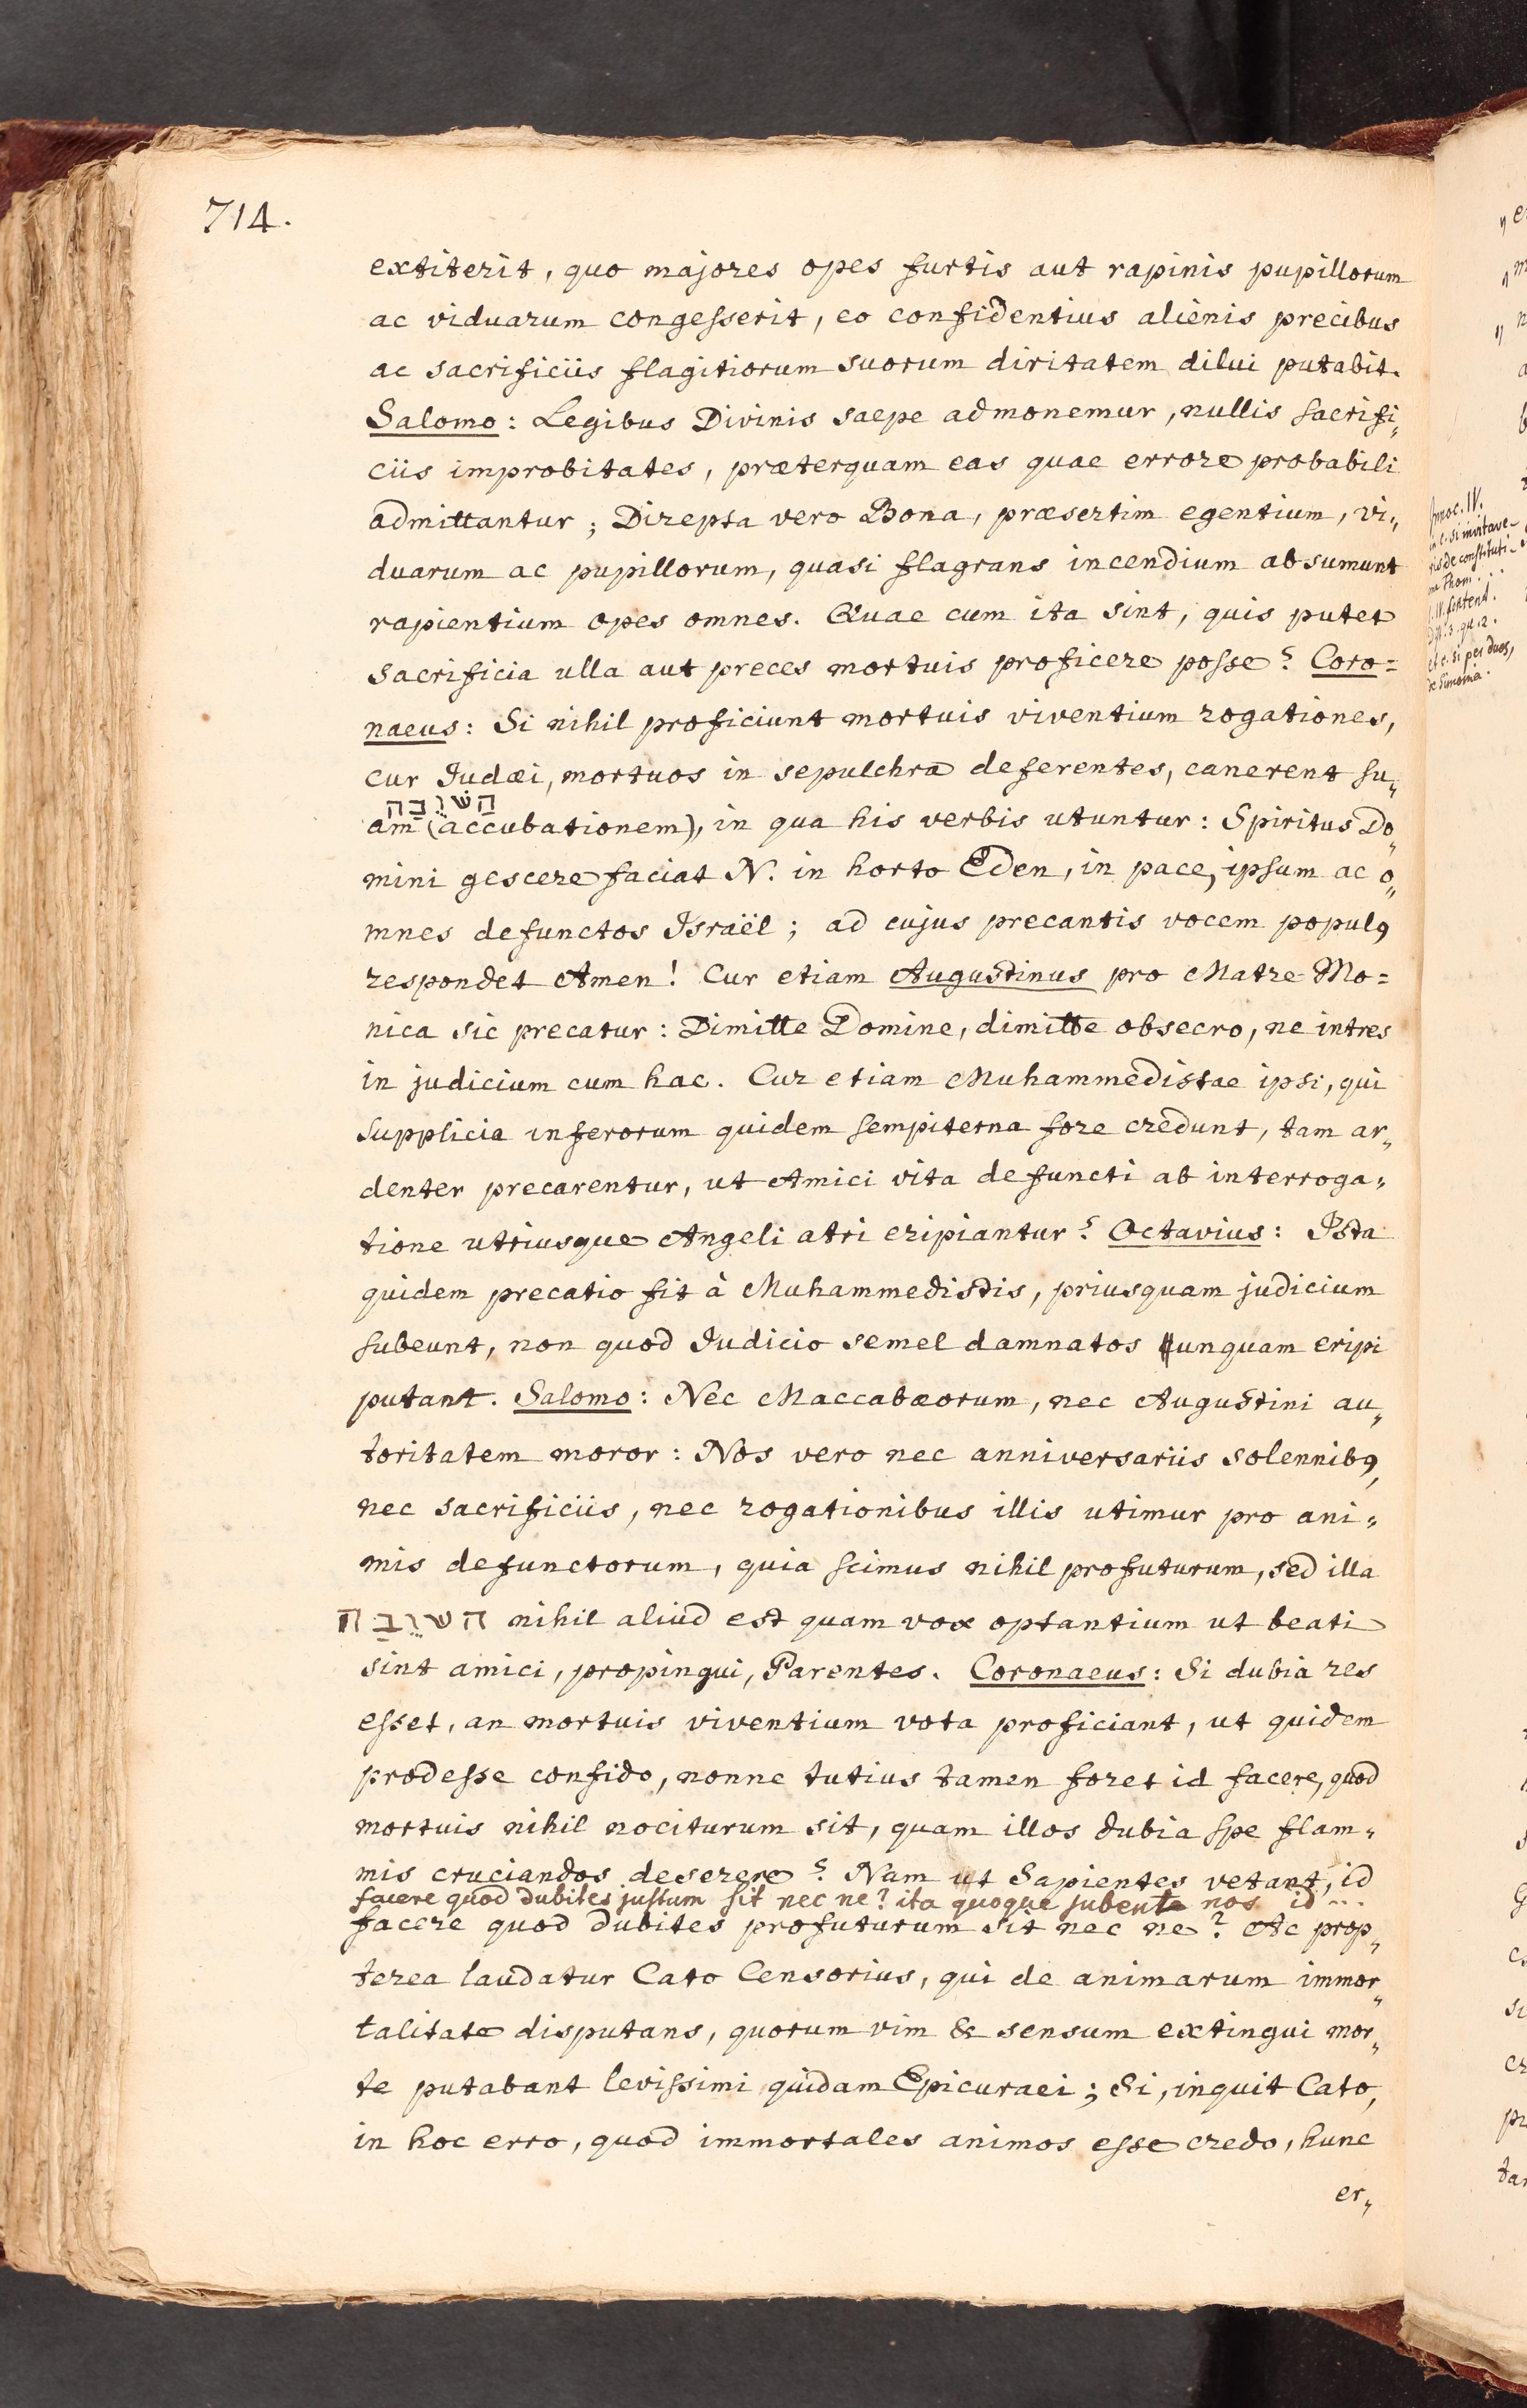 714.
extiterit, quo majores opes furtis aut rapinis pupillorum
ac viduarum congesserit, eo confidentius alienis precibus
ac sacrificiis flagitiorum suorum diritatem dilui putabit.
Salomo: Legibus Divinis saepe admonemur, nullis sacrifi„
ciis improbitates, præterquam eas quae errore probabili
admittantur; Direpta vero Bona, præsertim egentium, vi„
duarum ac pupillorum, quasi flagrans incendium absumunt
rapientium opes omnes. Quae cum ita sint, quis putet
sacrificia ulla aut preces mortuis proficere posse? Coro=
naeus: Si nihil proficiunt mortuis viventium rogationes,
cur Judæi, mortuos in sepulchra deferentes, canerent su„
הַשׁוֵבַה
am (accubationem), in qua his verbis utuntur: Spiritus Do„
mini gescere faciat N. in horto Eden, in pace, ipsum ac o„
mnes defunctos Israël; ad cujus precantis vocem populꝰ
respondet Amen! Cur etiam Augustinus pro Matre Mo=
nica sic precatur: Dimitte Domine, dimitte obsecro, ne intres
in judicium cum hac. Cur etiam Muhammedistae ipsi, qui
supplicia inferorum quidem sempiterna fore credunt, tam ar„
denter precarentur, ut Amici vita defuncti ab interroga„
tione utriusque Angeli atri eripiantur? Octavius: Ista
quidem precatio fit à Muhammedistis, priusquam judicium
subeunt, non quod Judicio semel damnatos unquam eripi
putant. Salomo: Nec Maccabæorum, nec Augustini au„
toritatem moror: Nos vero nec anniversariis solennibꝰ,
nec sacrificiis, nec rogationibus illis utimur pro ani„
mis defunctorum, quia scimus nihil profuturum, sed illa
השוֵבַה nihil aliud est quam vox optantium ut beati
sint amici, propingui, Parentes. Coronaeus: Si dubia res
esset, an mortuis viventium vota proficiant, ut quidem
prodesse confido, nonne tutius tamen foret id facere, quod
mortuis nihil nociturum sit, quam illos dubia spe flam„
mis cruciandos deserere? Nam ut Sapientes vetant, id
facere quod dubites justum sit nec ne? ita quoque jubent nos id ...
facere quod dubites profuturum sit nec ne? Ac prop„
terea laudatur Cato Censorius, qui de animarum immor„
talitate disputans, quorum vim & sensum extingui mor„
te putabant levissimi quidam Epicuraei; Si, inquit Cato,
in hoc erro, quod immortales animos esse credo, hunc
er„
Innoc. IV.
in c. si invitave-
ris de constituti-
one Thom.
l. IV. sentent.
et c. si per duos,
de Simonia.